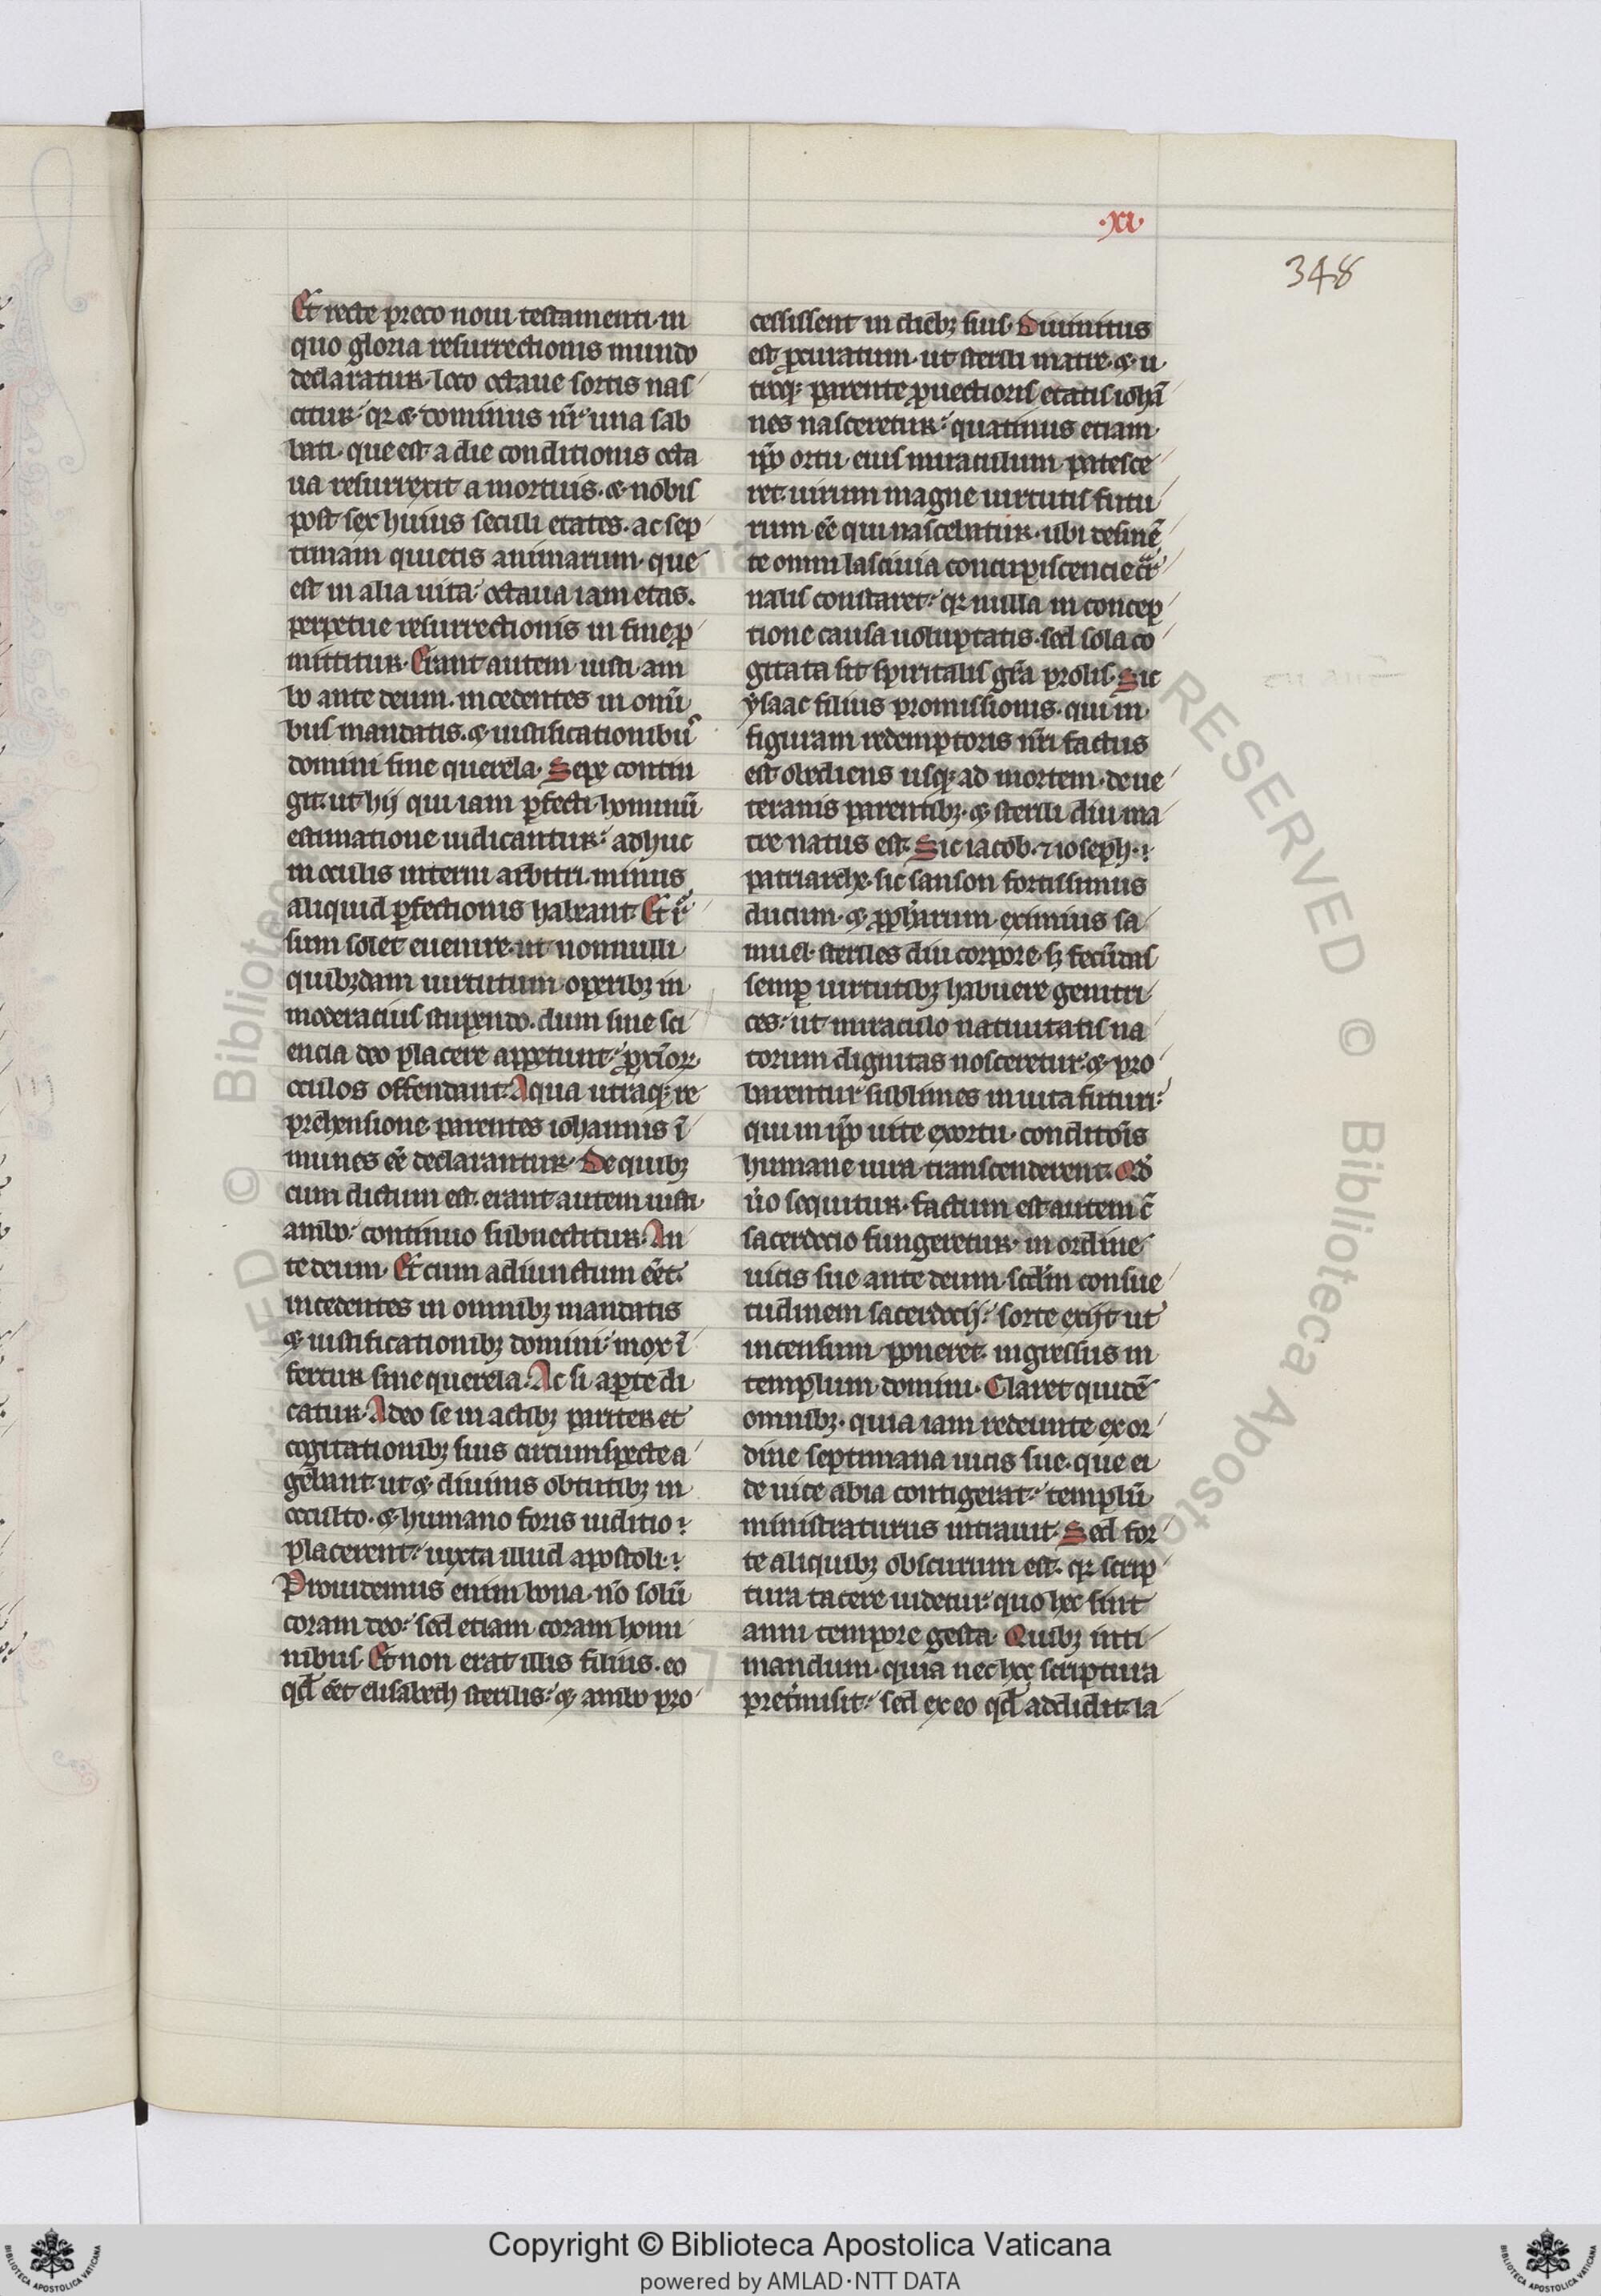 ·xi·
348
Et recte preco noui testamenti· in
quo gloria resurrectionis mundo
declaratur· loco octaue sortis nas
citur· qꝛ ⁊ dominus nr̄ una sab
bati· que est a die conditionis octa
ua resurrexit a mortuis· ⁊ nobis
post sex huius seculi etates· ac sep
timam quietis animarum· que
est in alia uita· octaua iam etas·
perpetue resurrectionis in fine ꝓ
mittitur· Erant autem iusti am
bo ante deum· incedentes in omī
bus mandatis· ⁊ iustificationibus
domini sine querela· Sepe contin
git· ut hij qui iam ꝑfecti hominū
estimatione iudicantur· adhuc
in oculis interni arbitri minus
aliquid ꝑfectionis habeant· Et ī
sum solet euenire· ut nonnulli
quibꝫdam uirtutum operibꝫ in
moderacius stupendo· dum sine sci
encia deo placere appetunt· ꝓximoꝝ
oculos offendant· A qua utraqꝫ re
prehensione parentes iohannis ī
munes eē declarantur· De quibꝫ
cum dictum est· erant autem iusti
ambo· continuo subuectitur· An
te deum· Et cum adiunctum eēt·
incedentes in omnibꝫ mandatis
⁊ iustificationibꝫ domini· mox ī
fertur sine querela· Ac si aꝑte di
catur· Adeo se in actibꝫ pariter et
cogitationibꝫ suis circumspecte a
gebant· ut ⁊ diuinis obtutibꝫ in
occulto· ⁊ humano foris iuditio
placerent· iuxta illud apostoli·
Prouidemus enim bona· nō solū
coram deo· sed etiam coram homi
nibus· Et non erat illis filius· eo
qd̄ eēt elisabeth sterilis· ⁊ ambo pro
cessissent in diebꝫ suis· Diuinitus
est ꝓcuratum· ut sterili matre· ⁊ u
troqꝫ parente ꝓuectioris etatis iohā
nes nasceretur· quatinus etiam
ip̄o ortu eius miraculum patesce
ret· uirum magne uirtutis futu
rum eē qui nascebatur· ubi desinē
te omni lasciuia concupiscencie car
nalis constaret· qꝛ nulla in concep
tione causa uoluptatis· sed sola co
gitata sit spiritalis gr̄a prolis· Sic
ysaac filius promissionis· qui in
figuram redemptoris nr̄i factus
est obediens usqꝫ ad mortem· de ue
teranis parentibꝫ· ⁊ sterili diu ma
tre natus est· Sic iacob· ⁊ ioseph·
patriarche· sic sanson fortissimus
ducum· ⁊ ꝓph̄arum eximius sa
muel· steriles diu corpore· sꝫ fecūdas
semꝑ uirtutibꝫ habuere genitri
ces· ut miraculo natiuitatis na
torum dignitas nosceretur· ⁊ pro
barentur sublimes in uita futuri·
qui in ip̄o uite exortu· conditōis
humane iura transcenderent· Qd̄
u̇o sequitur· factum est autem c̄
sacerdocio fungeretur· in ordine
uicis sue ante deum· scd̄m consue
tudinem sacerdocij· sorte exijt ut
incensum poneret· ingressus in
templum domini· Claret quidē
omnibꝫ· quia iam redeunte ex or
dine septimana uicis sue· que ei
de uice abia contigerat· templū
ministraturus intrauit· Sed for
te aliquibꝫ obscurum est· qꝛ scrip
tura tacere uidetur· quo hec sint
anni tempore gesta· Quibꝫ inti
mandum· quia nec hec scriptura
pretermisit· sed ex eo qd̄ addidit· ia
Copyright © Biblioteca Apostolica Vaticana
powered by AMLAD·NTT DATA